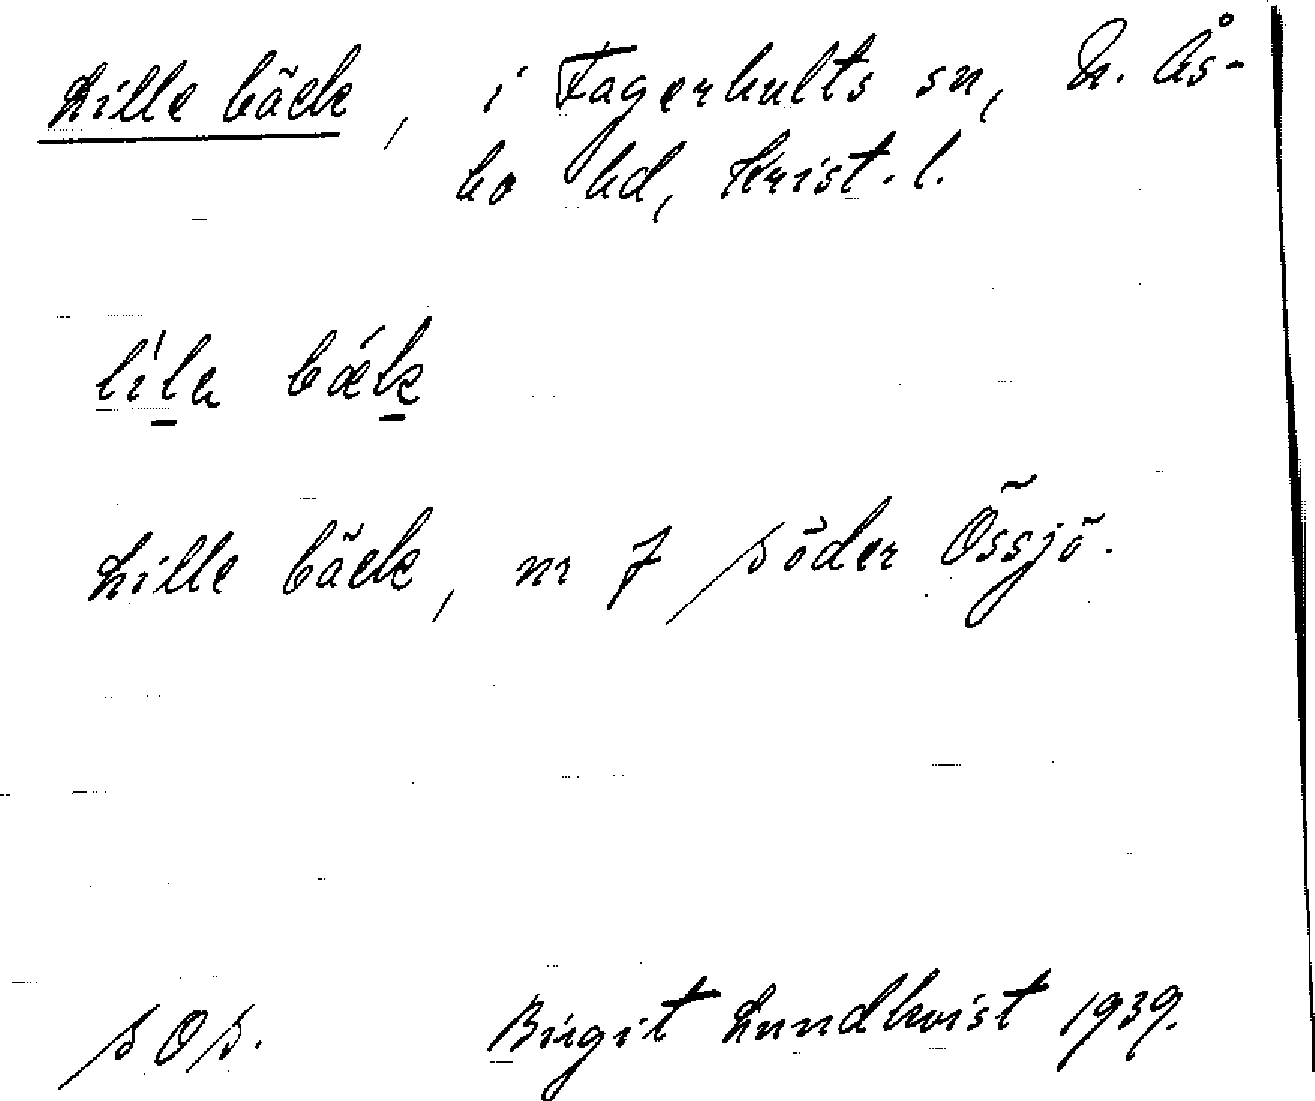 Lille bäck, i Fagerhults sn, N. Ås-
bo hd, Krist. l.
líla bǽk
Lille bäck, nr 7 söder Össjö.
sOs. Birgit Lundkvist 1939.